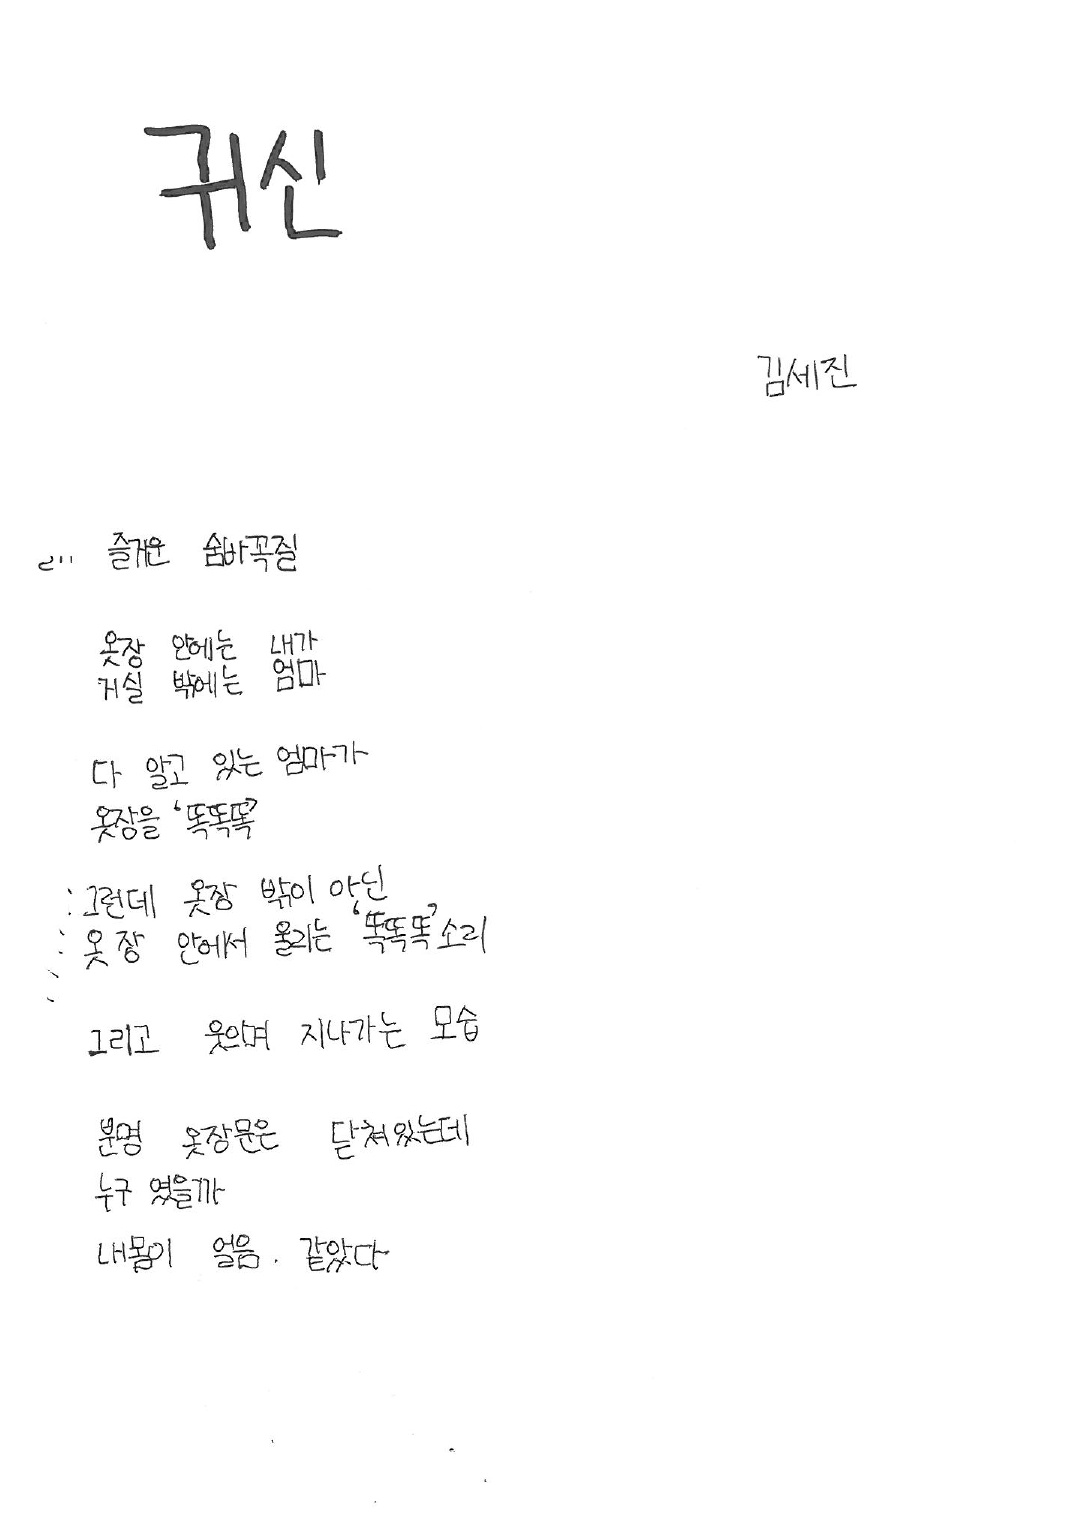 귀신
김세진
즐거운 숨바꼭질
옷장 안에는 내가
거실 밖에는 엄마
다 알고 있는 엄마가
옷장을 '똑똑똑'
그런데 옷장 밖이 아닌
옷장 안에서 울리는 '똑똑똑' 소리
그리고 웃으며 지나가는 모습
분명 옷장문은 닫쳐있는데
누구 였을까
내몸이 얼음. 같았다